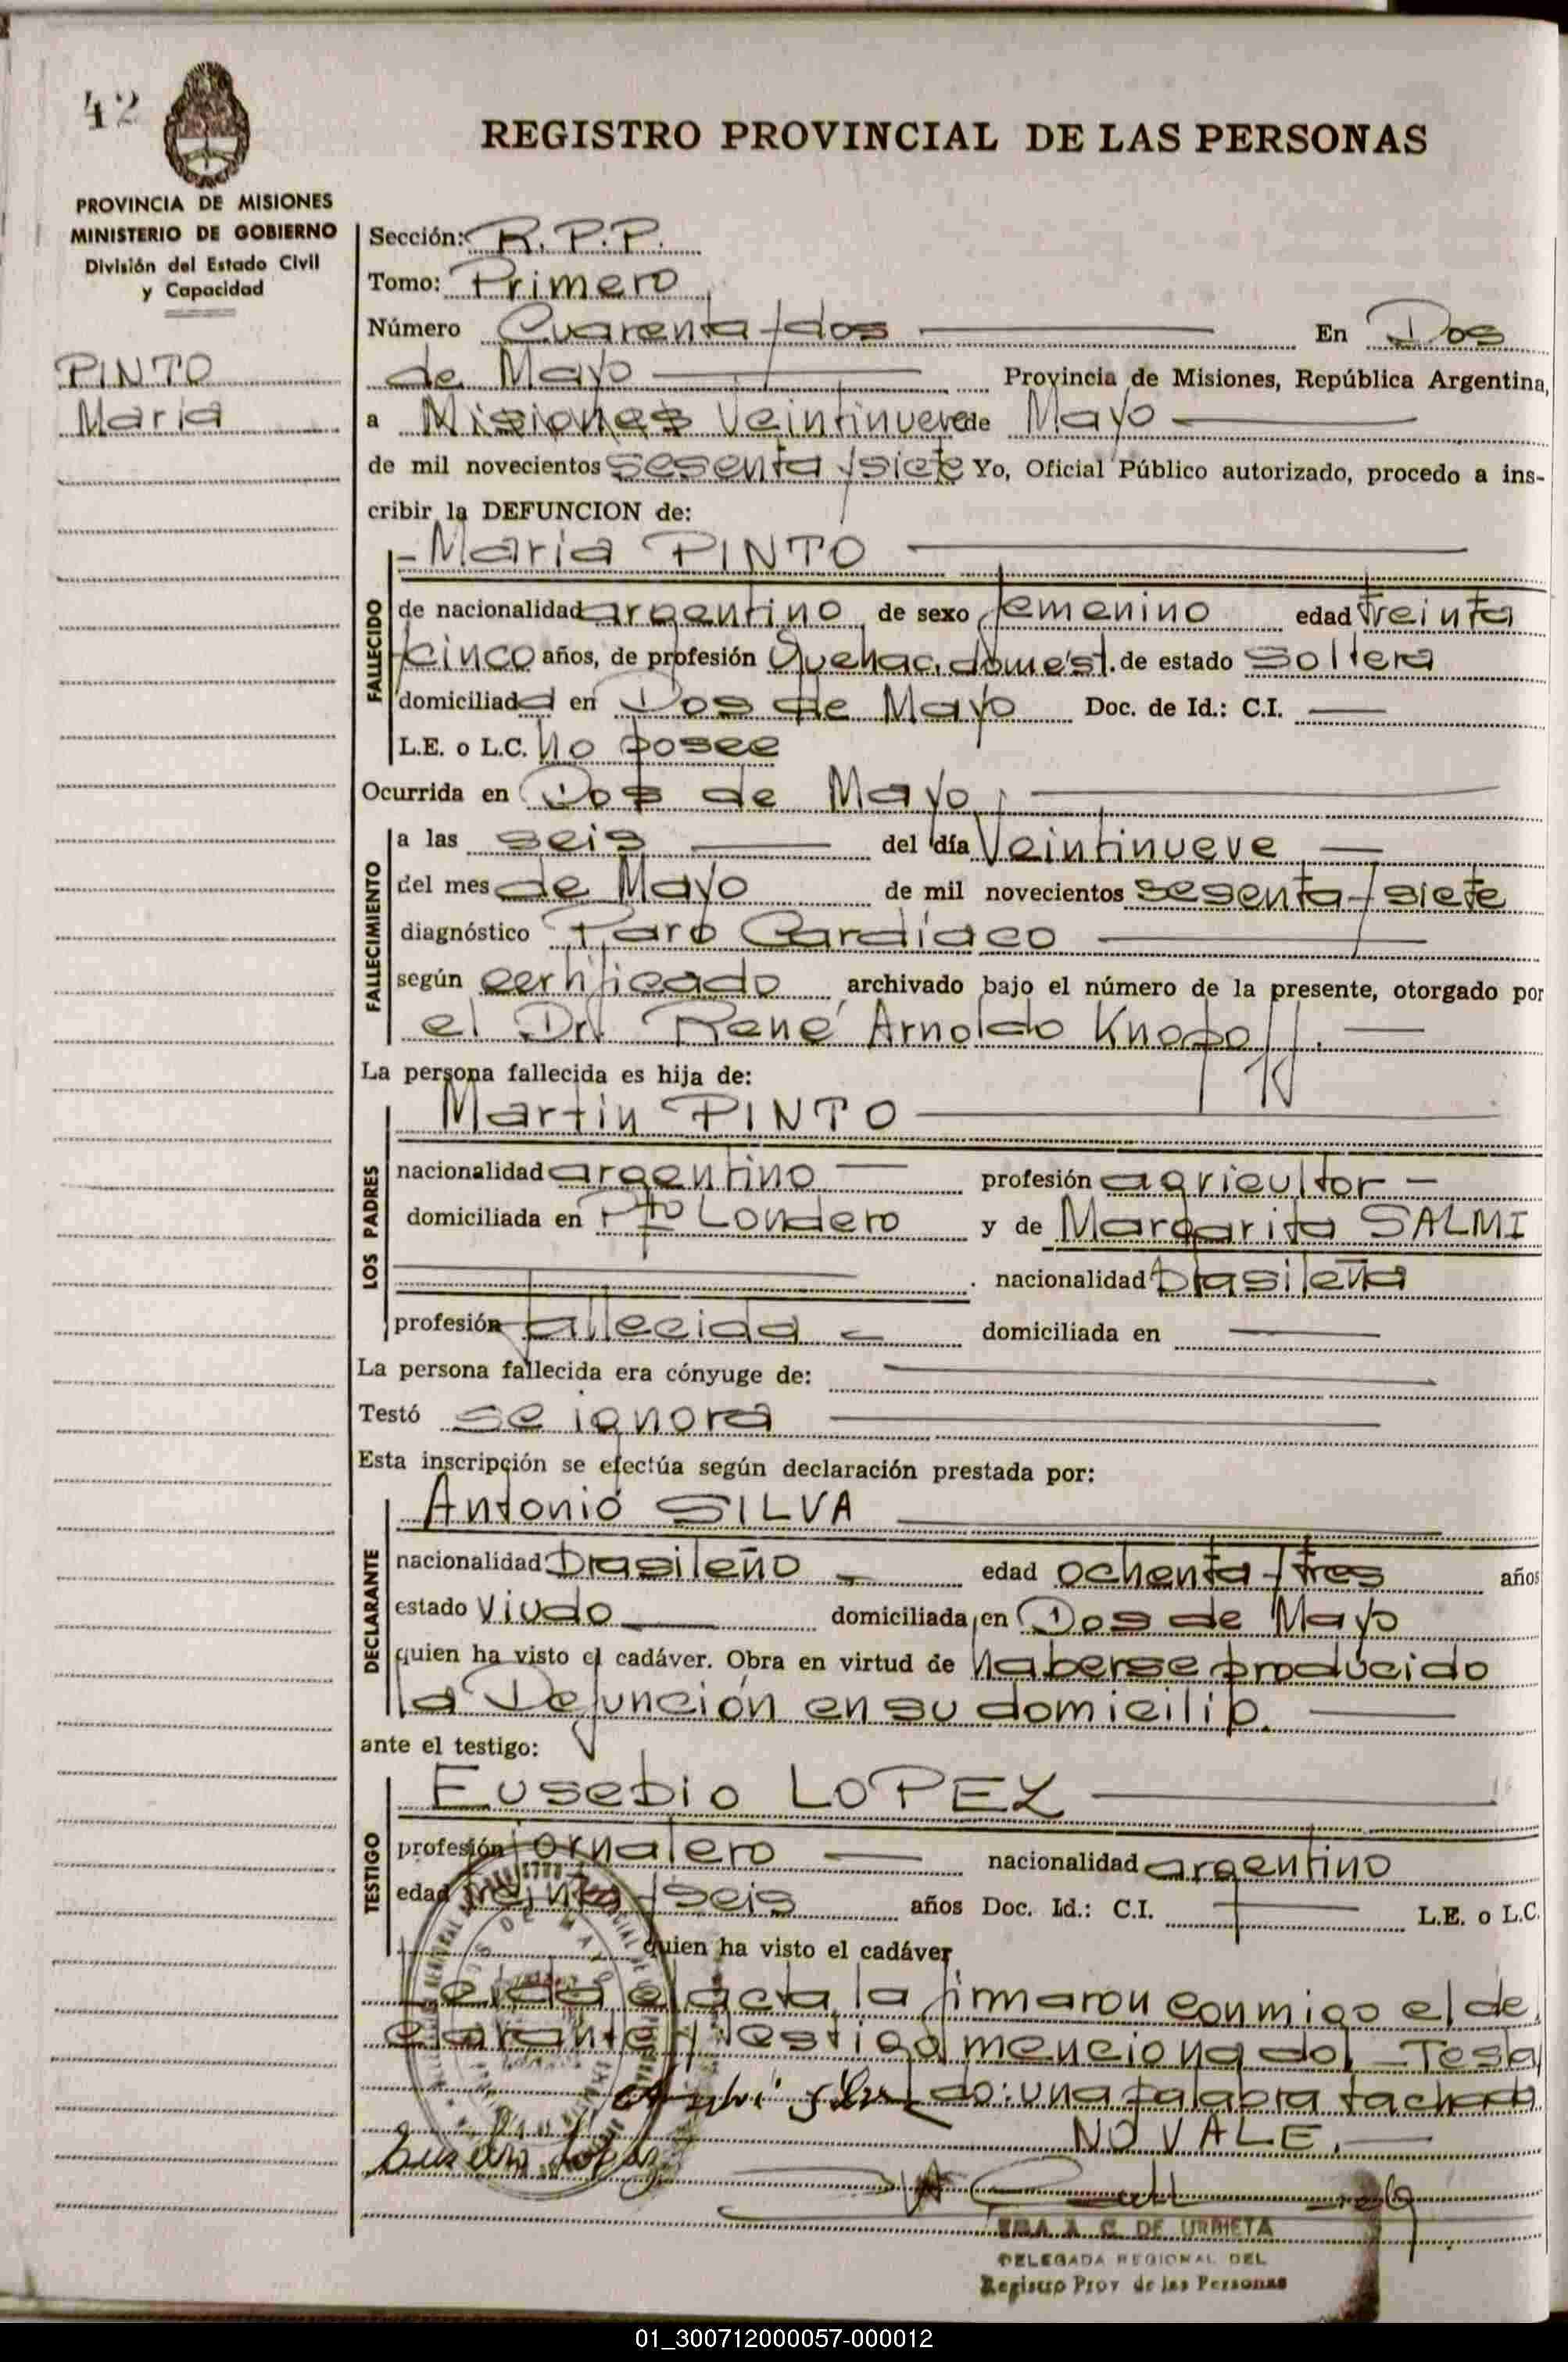 42
REGISTRO PROVINCIAL DE LAS PERSONAS
PROVINCIA DE MISIONES
MINISTERIO DE GOBIERNO
División del Estado Civil
y Capacidad
PINTO
Maria
Sección: R. P. P.
Tomo: Primero
Número Cuarenta y dos En Dos
de Mayo Provincia de Misiones, República Argentina,
a Misiones Veintinueve de Mayo
de mil novecientos sesenta y siete Yo, Oficial Público autorizado, procedo a ins-
cribir la DEFUNCION de:
- Maria PINTO
FALLECIDO
de nacionalidad argentino de sexo femenino edad treinta
y cinco años, de profesión Quehac. domést. de estado Soltera
domiciliada en Dos de Mayo Doc. de Id.: C.I.
L.E. o L.C. No posee
Ocurrida en Dos de Mayo
FALLECIMIENTO
a las seis del día Veintinueve
del mes de Mayo de mil novecientos sesenta y siete
diagnóstico Paro Cardíaco
según certificado archivado bajo el número de la presente, otorgado por
el Dr. René Arnoldo Knopoff.
La persona fallecida es hija de:
LOS PADRES
Martin PINTO
nacionalidad argentino profesión agricultor
domiciliada en Pto Londero y de Margarita SALMI
nacionalidad brasileña
profesión fallecida domiciliada en
La persona fallecida era cónyuge de:
Testó se ignora
Esta inscripción se efectúa según declaración prestada por:
DECLARANTE
Antonio SILVA
nacionalidad brasileño edad ochenta y tres años
estado Viudo domiciliada en Dos de Mayo
quien ha visto el cadáver. Obra en virtud de haberse producido
la Defunción en su domicilio.
ante el testigo:
TESTIGO
Eusebio LOPEZ
profesión jornalero nacionalidad argentino
edad treinta y seis años Doc. Id.: C.I. L.E. o L.C.
quien ha visto el cadáver
Leida el acta, la firmaron conmigo el de
clarante y testigo mencionado. - Tesa
do: una palabra tachada
NO VALE.
A. C. DE URRIETA
DELEGADA REGIONAL DEL
Registro Prov de las Personas
01_300712000057-000012